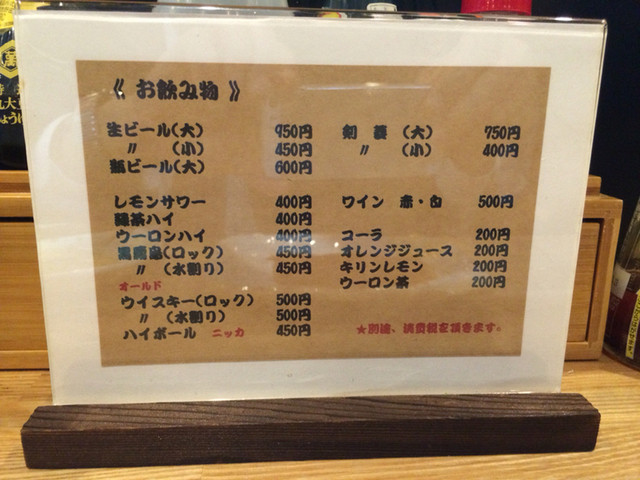 《 お飲み物 》
生ビール(大) 950円
〃 (小) 450円
瓶ビール(大) 600円
レモンサワー 400円
緑茶ハイ 400円
ウーロンハイ 400円
(ロック) 450円
〃 (水割り) 450円
オールド
ウイスキー(ロック) 500円
〃 (水割り) 500円
ハイボール ニッカ 450円
剣菱 (大) 750円
〃 (小) 400円
ワイン 赤・白 500円
コーラ 200円
オレンジジュース 200円
キリンレモン 200円
ウーロン茶 200円
★別途、消費税を頂きます。